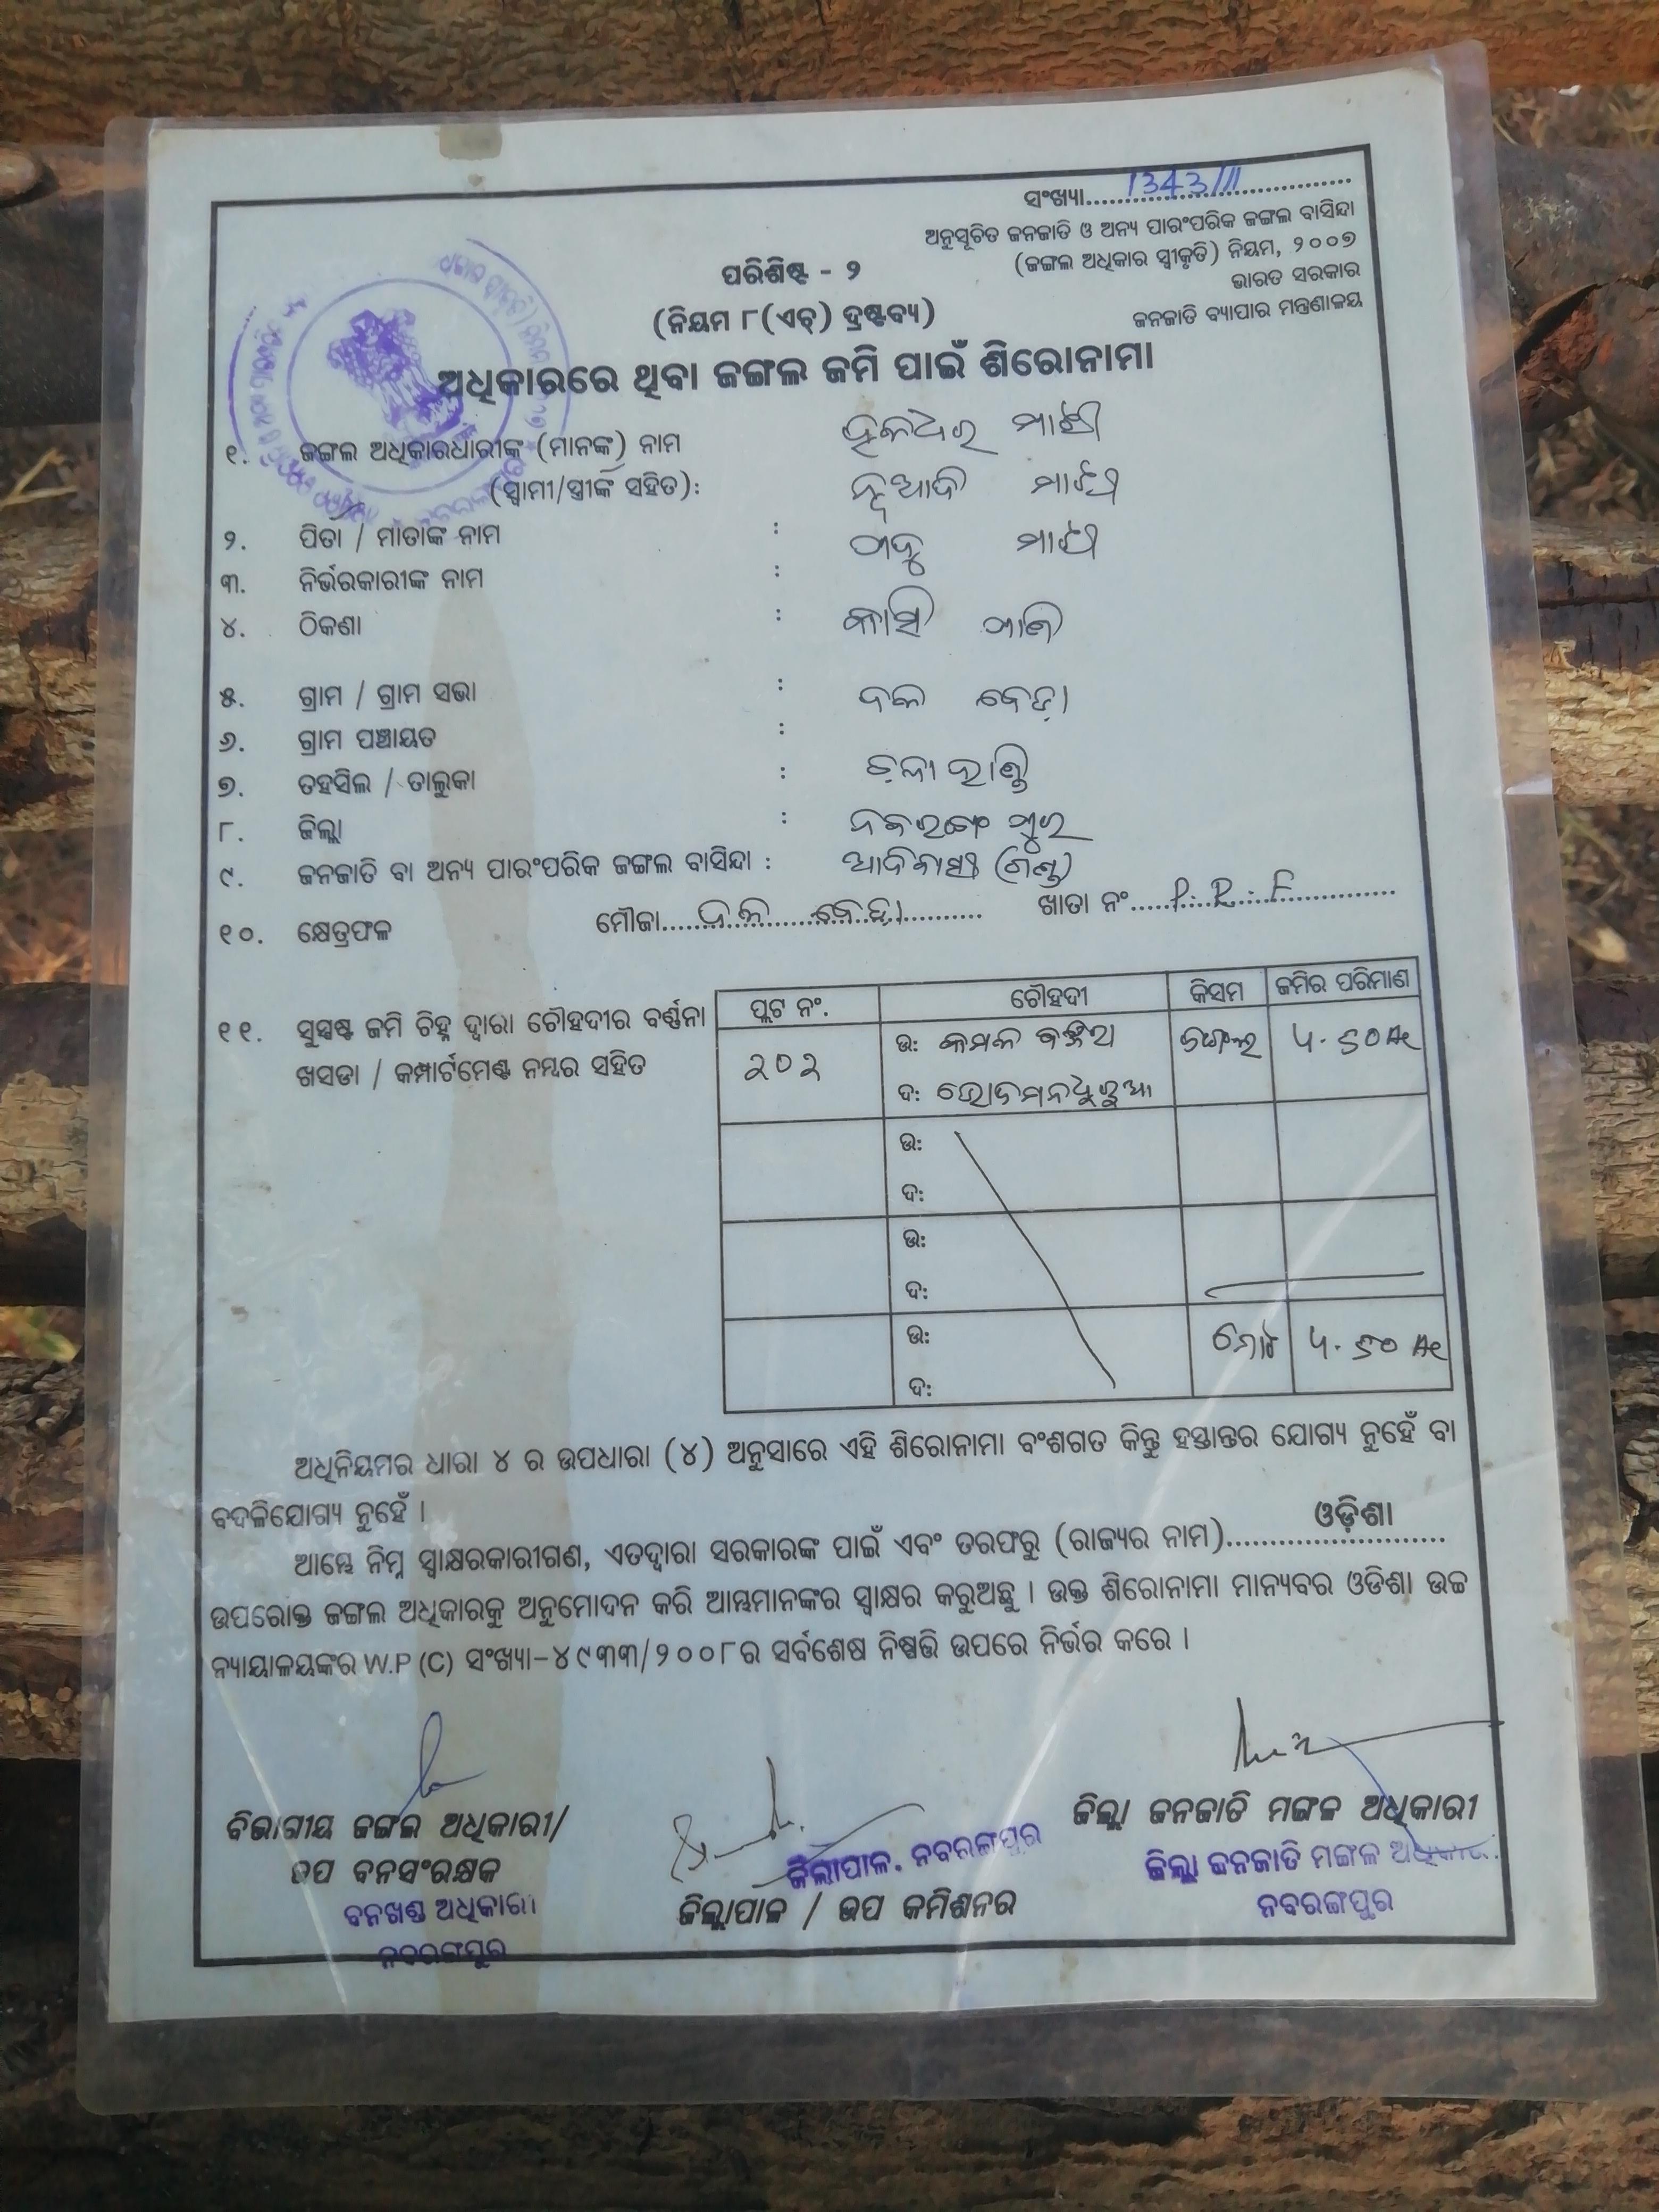 ସଂଖ୍ୟା....1343/11....
ଅନୁସୂଚିତ ଜନଜାତି ଓ ଅନ୍ୟ ପାରଂପରିକ ଜଙ୍ଗଲ ବାସିନ୍ଦା
(ଜଙ୍ଗଲ ଅଧିକାର ସ୍ୱୀକୃତି) ନିୟମ, ୨୦୦୭
ଭାରତ ସରକାର
ଜନଜାତି ବ୍ୟାପାର ମନ୍ତ୍ରଣାଳୟ
ପରିଶିଷ୍ଟ - ୨
(ନିୟମ ୮(ଏଚ୍) ଦ୍ରଷ୍ଟବ୍ୟ)
ଅଧିକାରରେ ଥିବା ଜଙ୍ଗଲ ଜମି ପାଇଁ ଶିରୋନାମା
୧. ଜଙ୍ଗଲ ଅଧିକାରଧାରୀଙ୍କ (ମାନଙ୍କ) ନାମ ହଳଧର ମାଝୀ
(ସ୍ୱାମୀ/ସ୍ତ୍ରୀଙ୍କ ସହିତ): ମାଝୀ
୨. ପିତା / ମାତାଙ୍କ ନାମ : ମାଝୀ
୩. ନିର୍ଭରକାରୀଙ୍କ ନାମ :
୪. ଠିକଣା :
୫. ଗ୍ରାମ / ଗ୍ରାମ ସଭା : ବେଡ଼ା
୬. ଗ୍ରାମ ପଞ୍ଚାୟତ :
୭. ତହସିଲ / ତାଲୁକା :
୮. ଜିଲ୍ଲା : ନବରଙ୍ଗ ପୁର
୯. ଜନଜାତି ବା ଅନ୍ୟ ପାରଂପରିକ ଜଙ୍ଗଲ ବାସିନ୍ଦା : ଆଦିବାସୀ (ଗଣ୍ଡ)
୧୦. କ୍ଷେତ୍ରଫଳ ମୌଜା.... ବେଡ଼ା.... ଖାତା ନଂ....P.R.F....
ପ୍ଲଟ ନଂ. ଚୌହଦୀ କିସମ ଜମିର ପରିମାଣ
୧୧. ସୁସ୍ପଷ୍ଟ ଜମି ଚିହ୍ନ ଦ୍ୱାରା ଚୌହଦୀର ବର୍ଣ୍ଣନା
ଖସଡା / କମ୍ପାର୍ଟମେଣ୍ଟ ନମ୍ବର ସହିତ
୨୦୨ ଉ: କମଳ ଜଙ୍ଗଲ ୪.50 Ac
ଦ:
ଉ:
ଦ:
ଉ:
ଦ:
ଉ: ମୋଟ ୪.50 Ac
ଦ:
ଅଧିନିୟମର ଧାରା ୪ ର ଉପଧାରା (୪) ଅନୁସାରେ ଏହି ଶିରୋନାମା ବଂଶଗତ କିନ୍ତୁ ହସ୍ତାନ୍ତର ଯୋଗ୍ୟ ନୁହେଁ ବା
ବଦଳିଯୋଗ୍ୟ ନୁହେଁ ।
ଆମ୍ଭେ ନିମ୍ନ ସ୍ୱାକ୍ଷରକାରୀଗଣ, ଏତଦ୍ୱାରା ସରକାରଙ୍କ ପାଇଁ ଏବଂ ତରଫରୁ (ରାଜ୍ୟର ନାମ)....ଓଡ଼ିଶା....
ଉପରୋକ୍ତ ଜଙ୍ଗଲ ଅଧିକାରକୁ ଅନୁମୋଦନ କରି ଆମ୍ଭମାନଙ୍କର ସ୍ୱାକ୍ଷର କରୁଅଛୁ । ଉକ୍ତ ଶିରୋନାମା ମାନ୍ୟବର ଓଡିଶା ଉଚ୍ଚ
ନ୍ୟାୟାଳୟଙ୍କର W.P (C) ସଂଖ୍ୟା-୪୯୩୩/୨୦୦୮ର ସର୍ବଶେଷ ନିଷ୍ପତ୍ତି ଉପରେ ନିର୍ଭର କରେ ।
ବିଭାଗୀୟ ଜଙ୍ଗଲ ଅଧିକାରୀ/
ଉପ ବନସଂରକ୍ଷକ
ବନଖଣ୍ଡ ଅଧିକାରୀ
ନବରଙ୍ଗପୁର
ଜିଲ୍ଲାପାଳ. ନବରଙ୍ଗପୁର
ଜିଲ୍ଲାପାଳ / ଉପ କମିଶନର
ଜିଲ୍ଲା ଜନଜାତି ମଙ୍ଗଳ ଅଧିକାରୀ
ଜିଲ୍ଲା ଜନଜାତି ମଙ୍ଗଳ ଅଧିକାରୀ
ନବରଙ୍ଗପୁର